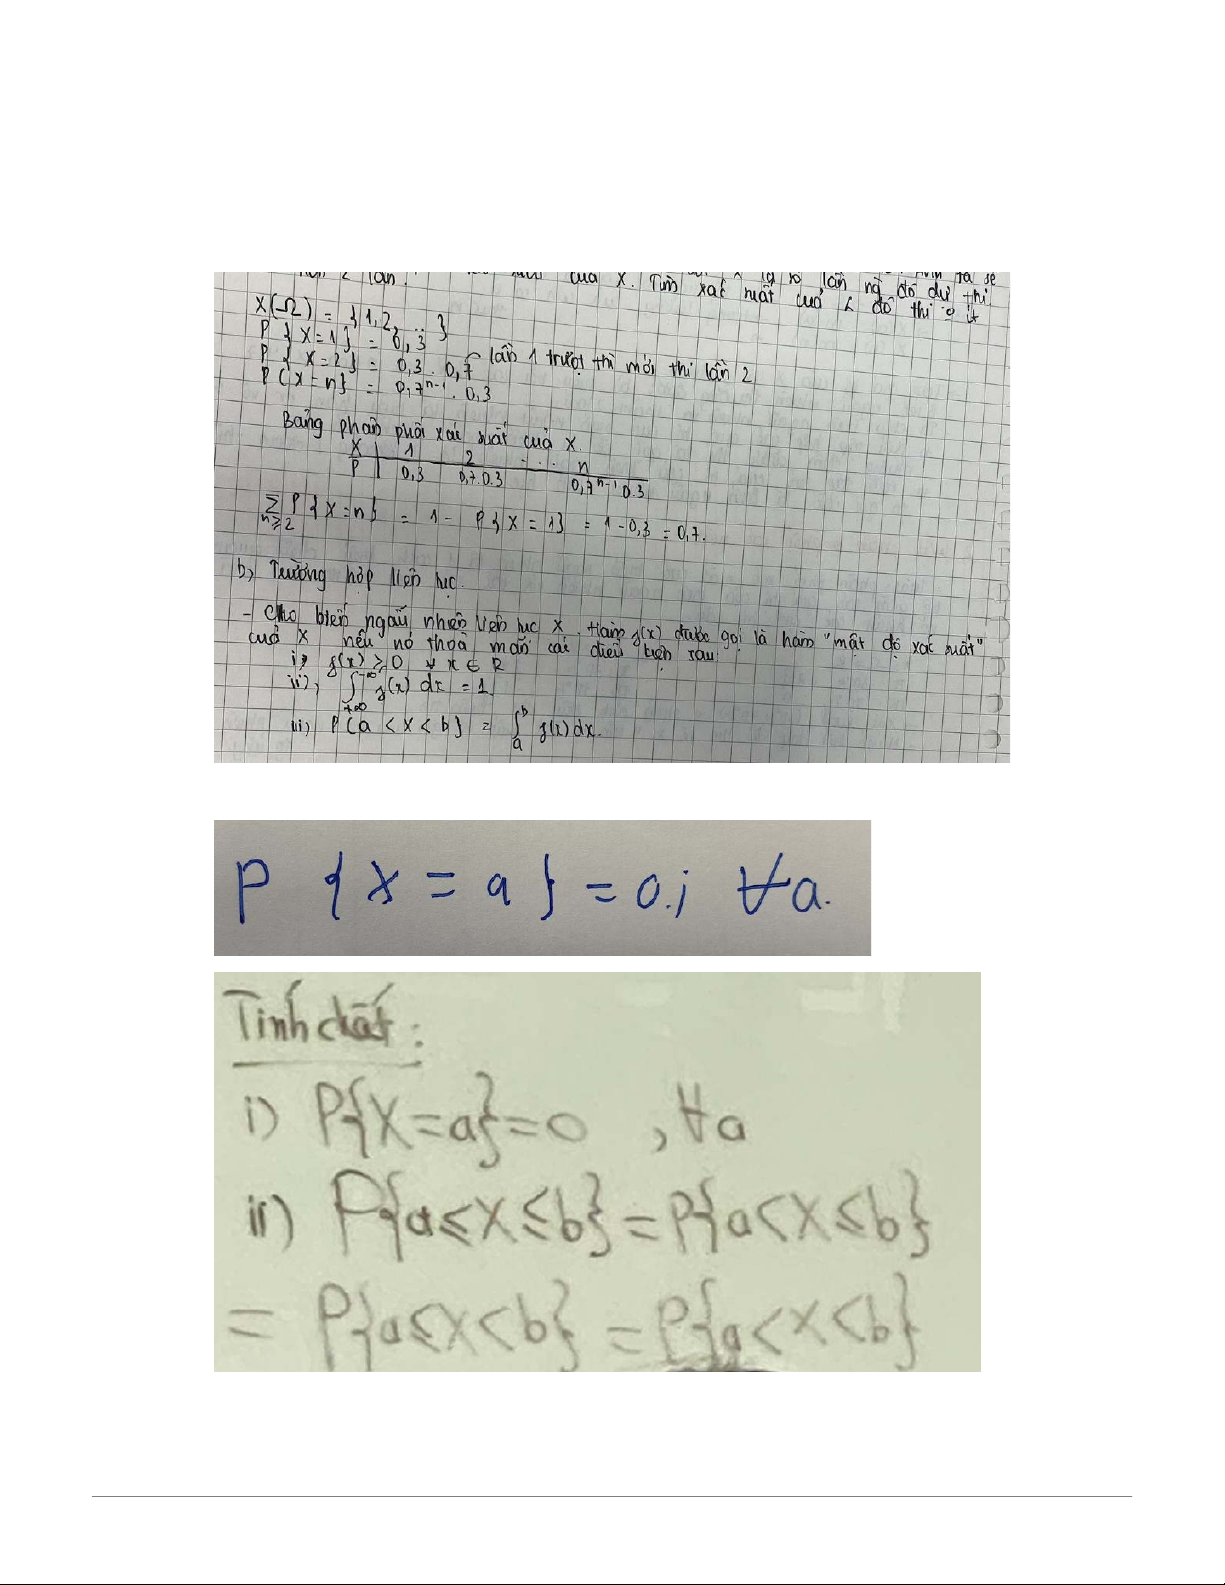 lần . của X. Tìm xác suất của để thi ít
X(Ω) = {1,2, ...}
P { X=1 } = 0,3
P { X=2 } = 0,3 . 0,7 lần 1 trượt thì mới thi lần 2
P { X=n } = 0,7^{n-1} . 0,3
Bảng phân phối xác suất của X.
X | 1 2 ... n
P | 0,3 0,7.0.3 0,7^{n-1} 0.3
∑_{n≥2} P { X=n } = 1 - P { X=1 } = 1-0,3 = 0,7.
b, Trường hợp liên tục.
- Cho biến ngẫu nhiên liên tục X. Hàm f(x) được gọi là hàm "mật độ xác suất"
của X nếu nó thoả mãn các điều kiện sau:
i, f(x) ≥ 0 ∀ x ∈ R
ii), ∫_{+∞}^{-∞} f(x) dx = 1
iii) P{a < X < b} = ∫_a^b f(x) dx.
P { X = a } = 0.; ∀a.
Tính chất:
i) P{X=a}=0 , ∀a
ii) P{a≤X≤b} = P{a<X≤b}
= P{a≤X<b} = P{a<X<b}